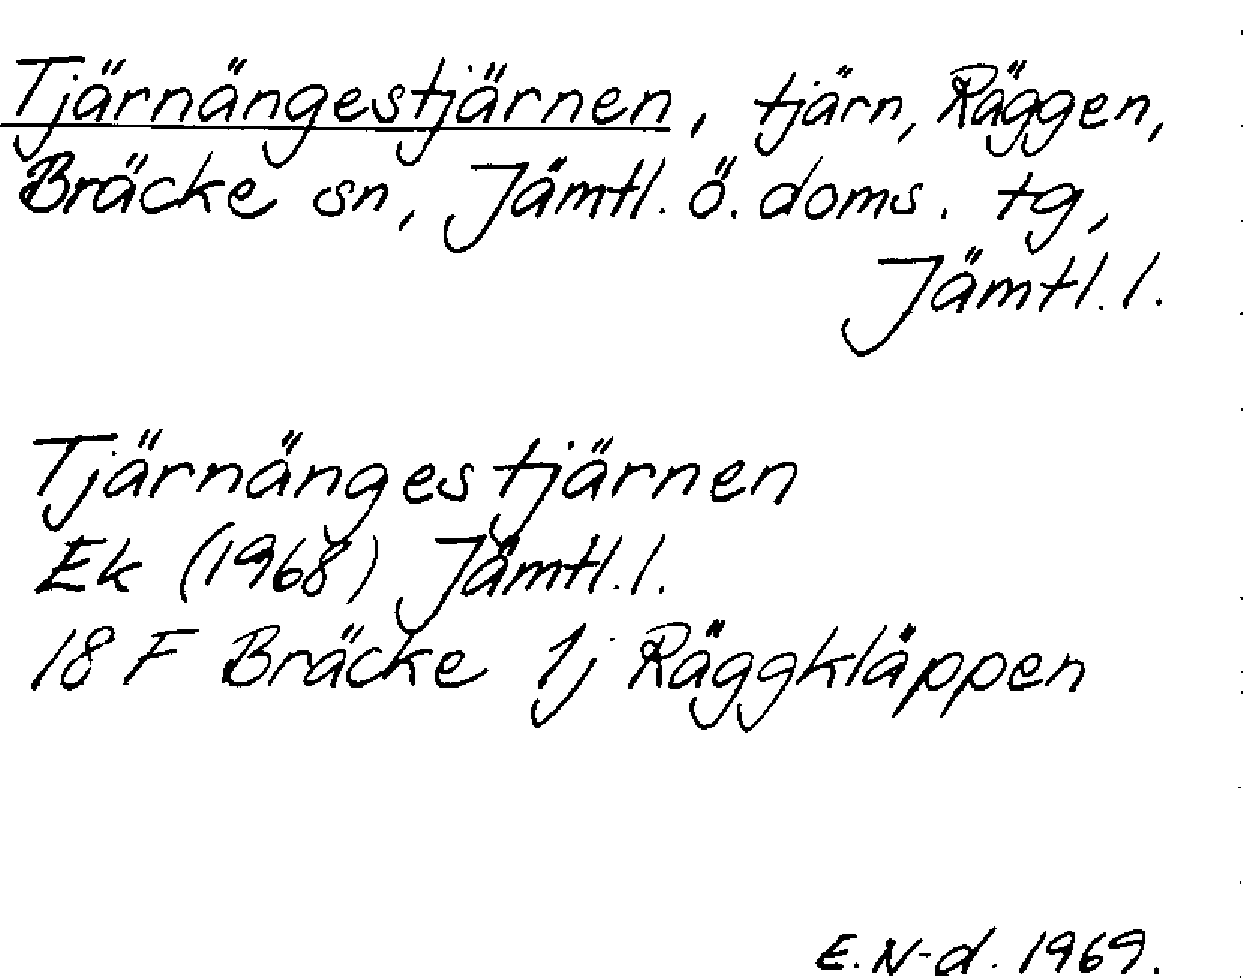 Tjärnängestjärnen, tjärn, Räggen,
Bräcke sn, Jämtl. ö. doms. tg,
Jämtl. l.
Tjärnängestjärnen
Ek (1968) Jämtl. l.
18 F Bräcke 1j Räggkläppen
E. N-d. 1969.